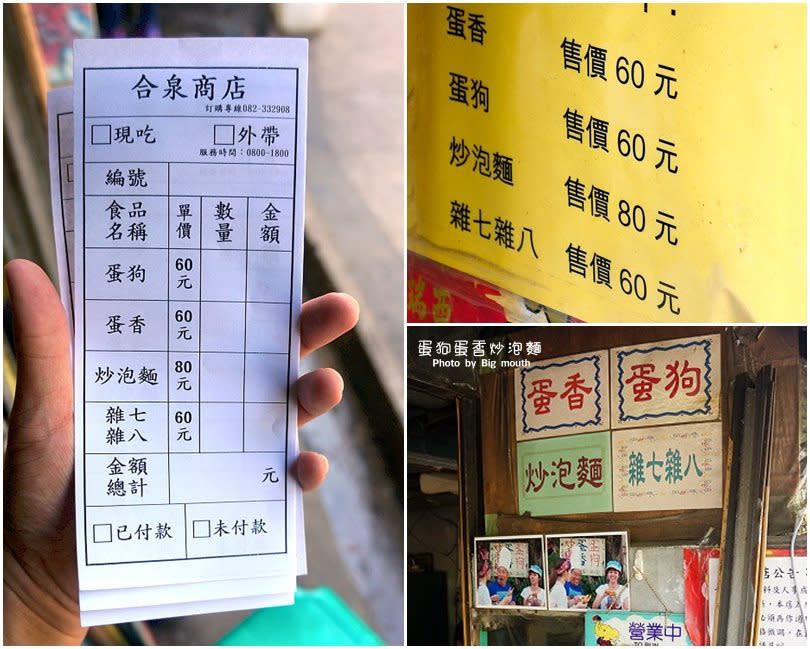 合泉商店
訂購專線082-332908
□現吃 □外帶
服務時間:0800-1800
編號
食品名稱 單價 數量 金額
蛋狗 60元
蛋香 60元
炒泡麵 80元
雜七雜八 60元
金額總計 元
□已付款 □未付款
蛋香 售價 60 元
蛋狗 售價 60 元
炒泡麵 售價 80 元
雜七雜八 售價 60 元
蛋狗蛋香炒泡麵
Photo by Big mouth
蛋香 蛋狗
炒泡麵 雜七雜八
營業中